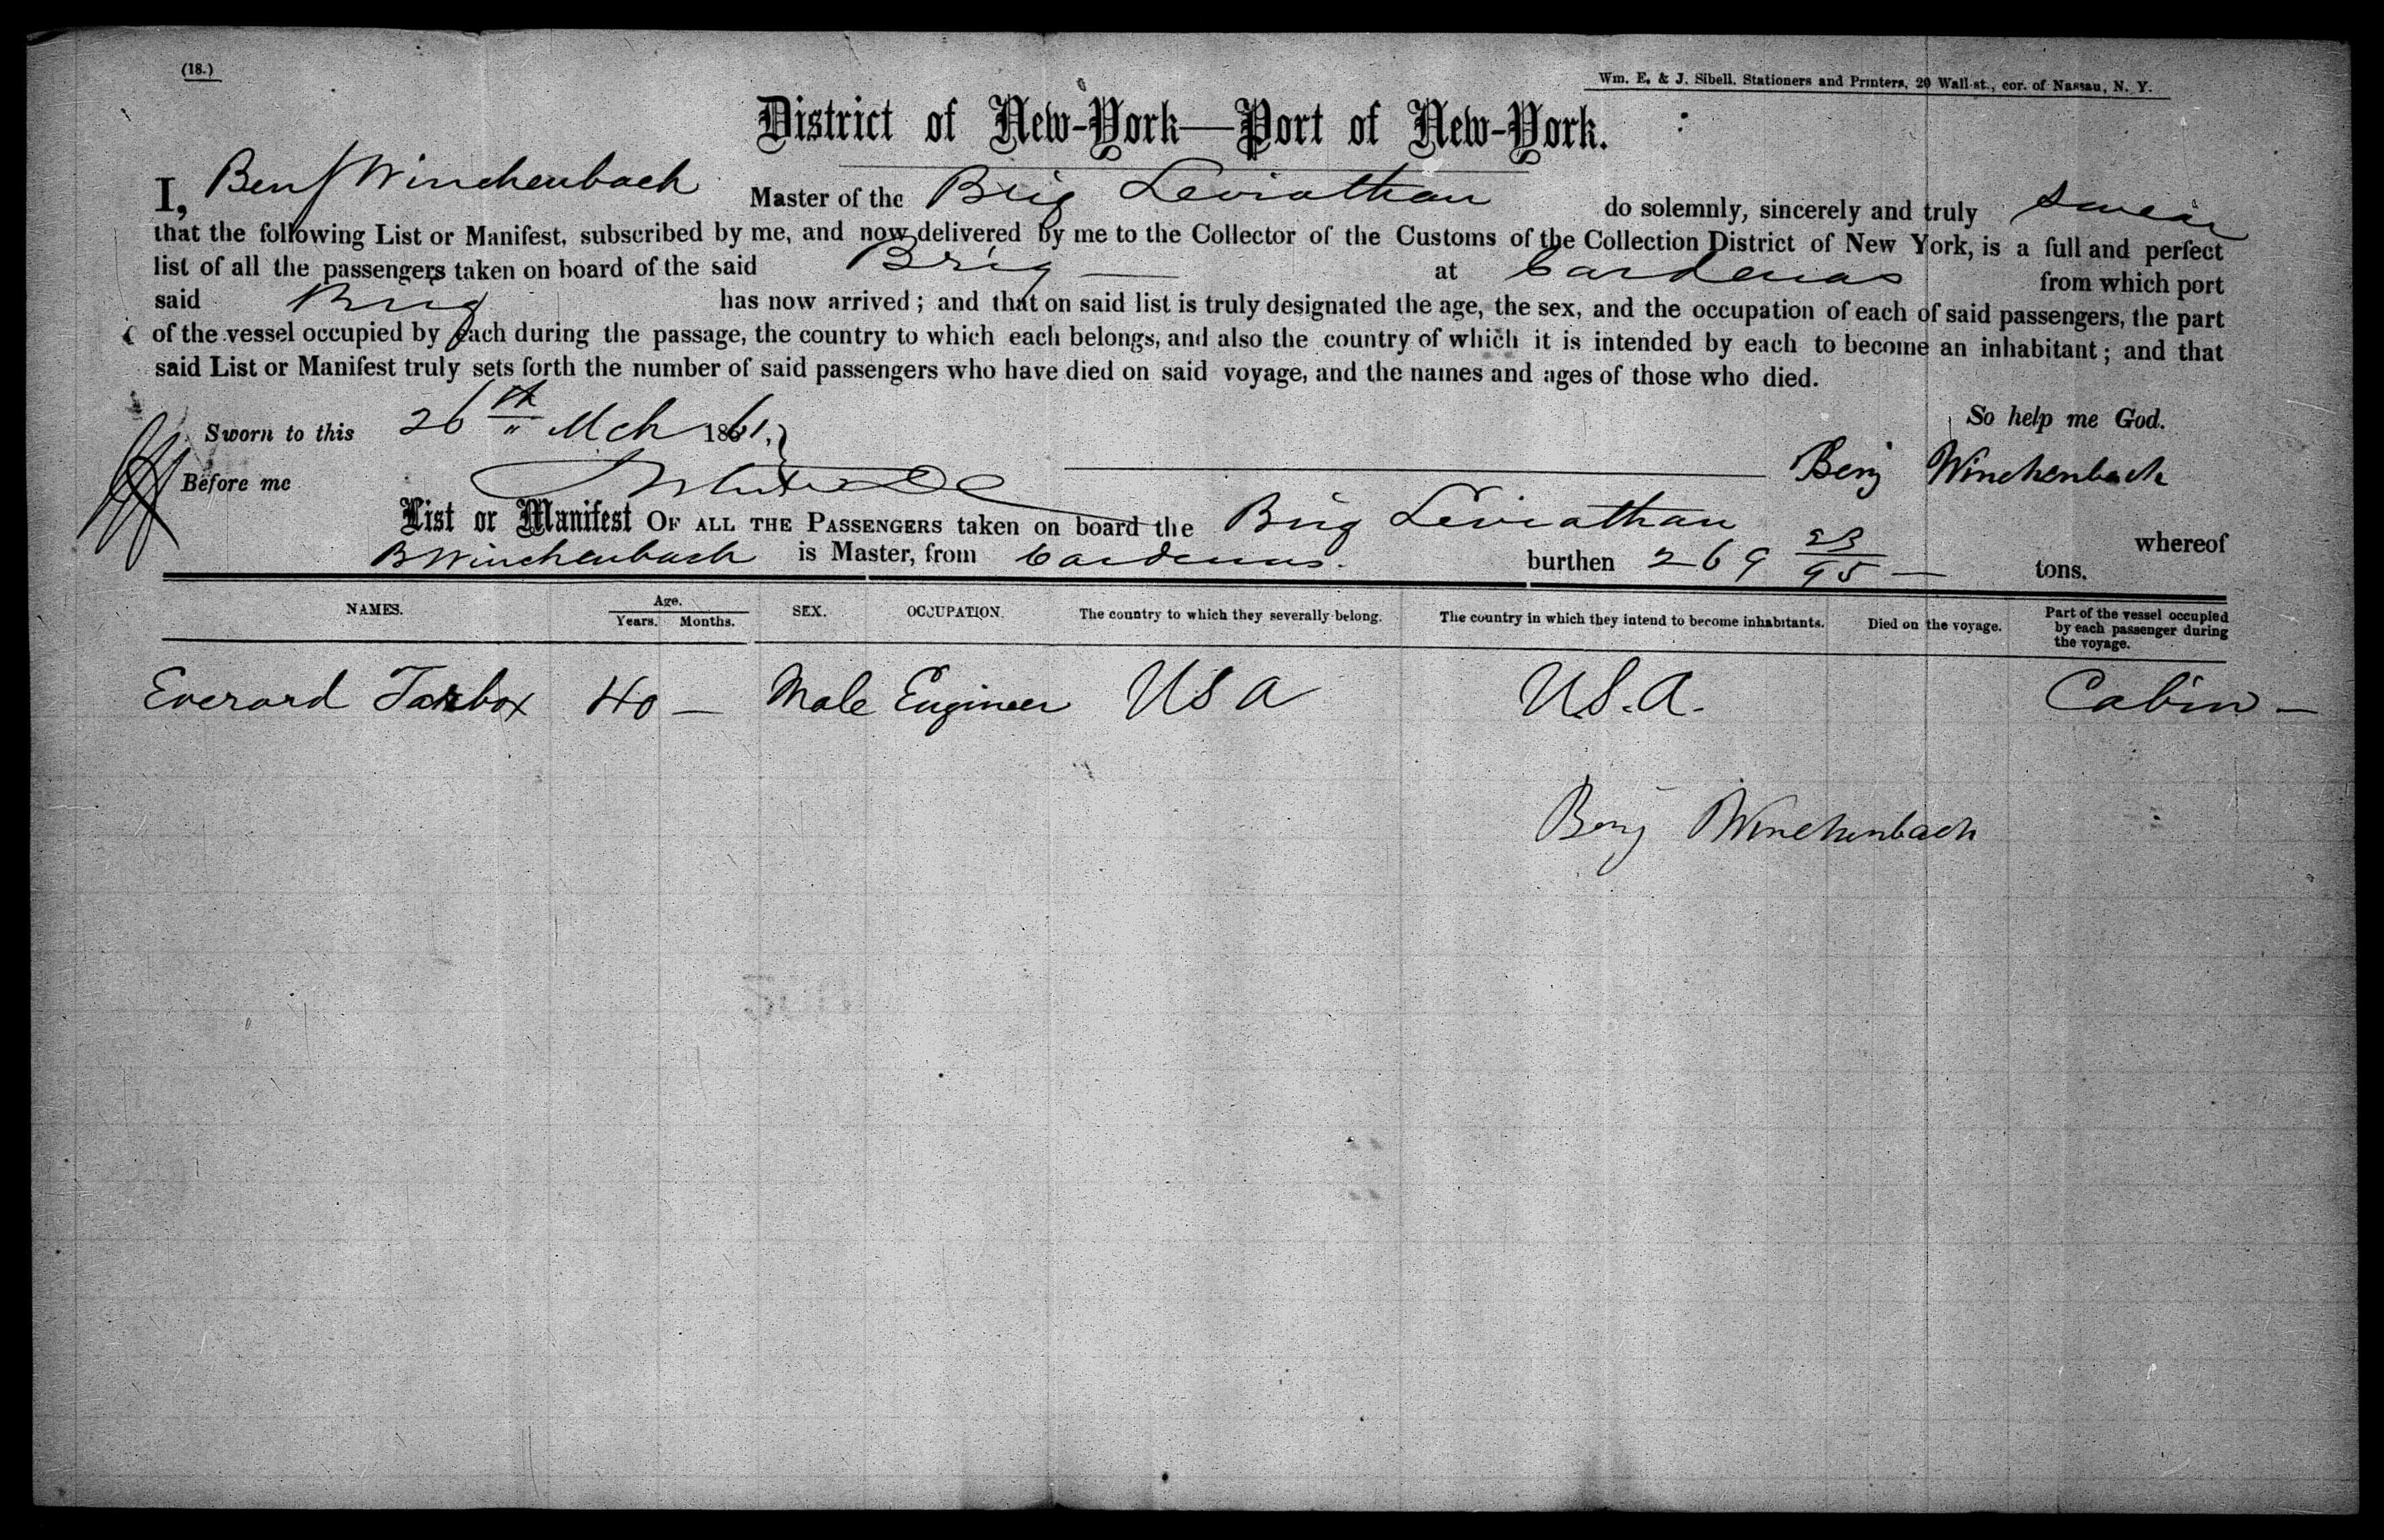 (18.)
Wm. E. & J. Sibell, Stationers and Printers, 20 Wall-st., cor. of Nassau, N. Y.
District of New-York—Port of New-York.
I, Benj Winchenbach Master of the Brig Leviathan do solemnly, sincerely and truly swear
that the following List or Manifest, subscribed by me, and now delivered by me to the Collector of the Customs of the Collection District of New York, is a full and perfect
list of all the passengers taken on board of the said Brig at Cardenas from which port
said Brig has now arrived; and that on said list is truly designated the age, the sex, and the occupation of each of said passengers, the part
of the vessel occupied by each during the passage, the country to which each belongs, and also the country of which it is intended by each to become an inhabitant; and that
said List or Manifest truly sets forth the number of said passengers who have died on said voyage, and the names and ages of those who died.
So help me God.
Sworn to this 26th Mch 1861.
Before me Benj Winchenbach
List or Manifest OF ALL THE PASSENGERS taken on board the Brig Leviathan whereof
B Winchenbach is Master, from Cardenas. burthen 269 23/95 — tons.
NAMES. Age. Years. Months. SEX. OCCUPATION. The country to which they severally belong. The country in which they intend to become inhabitants. Died on the voyage. Part of the vessel occupied by each passenger during the voyage.
Everard Tarbox 40 — Male Engineer USA U.S.A. Cabin —
Benj Winchenbach